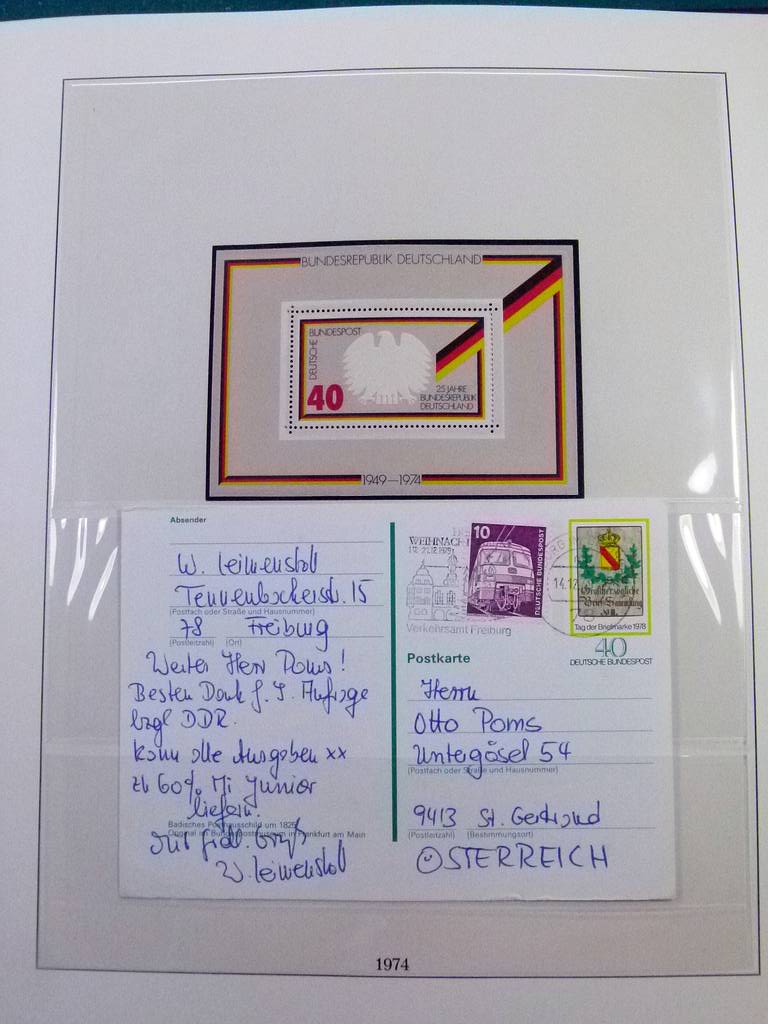 BUNDESREPUBLIK DEUTSCHLAND
DEUTSCHE BUNDESPOST
40
25 JAHRE
BUNDESREPUBLIK
DEUTSCHLAND
1949–1974
Absender
W. Leimenstoll
15
(Postfach oder Straße und Hausnummer)
78 Freiburg
(Postleitzahl) (Ort)
Werter Herr Poms!
Besten Dank f. I. Anfrage
bzgl DDR.
Kann alle Ausgaben xx
zu 60% Mi Junior
liefern.
Badisches Posthausschild um 1825
Original im Bundespostmuseum in Frankfurt am Main
Mit frdl. Gruß
W. Leimenstoll
WEIHNACH
Verkehrsamt Freiburg
10
DEUTSCHE BUNDESPOST
14.12
Großherzogliche
Brief-Sammlung
Tag der Briefmarke 1978
40
DEUTSCHE BUNDESPOST
Postkarte
Herrn
Otto Poms
Untergösel 54
(Postfach oder Straße und Hausnummer)
9413 St. Gertraud
(Postleitzahl) (Bestimmungsort)
ÖSTERREICH
1974